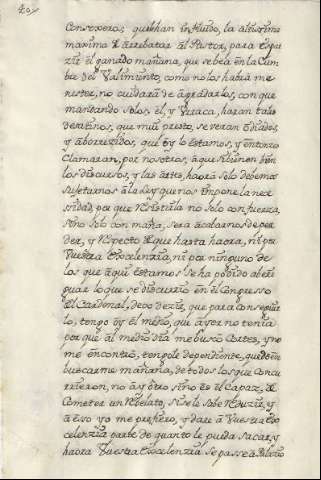 Consexeros, que han influido, la altissima
maxima de arrebatar al Pastor, para Caça
zar el ganado mañana, que se bea en la Cum
bre del Valimiento, como no los habrá me
nester, no cuidará de agradarlos, con que
mandando solos, él, y Veraca, harán tales
desatinos, que mui presto, se veran odiados,
y aborrecidos, qual oy lo estamos, y entonces
Clamaran, por nosotros; a que si bienen bien
los discursos, y las artes, haora solo debemos
sujetarnos a la Ley que nos impone la nece
sidad, por que resistirla no solo con fuerza,
sino solo con maña, será acabarnos de per
der, y respecto de que hasta haora, ni por
Vuestra Excelenzia, ni por ninguno de
los que aquí estamos se ha podido aberi
guar lo que se discurrió en el Congresso
del Cardenal, debo dezir, que para conseguir
lo, tengo oy el medio, que ayer no tenia
por que al medio dia me busco Cortes, y no
me encontró, tengole dependiente, quedó en
buscarme mañana, de todos los que concu
rrieron, no ay otro sino es él Capaz, de
Cometer un rebelato, si se le sabe reduzir, y
a esso yo me prefiero, y daré a Vuestra Ex
celenzia parte de quanto le pueda sacar, y
haora Vuestra Excelenzia se passe a Palazio